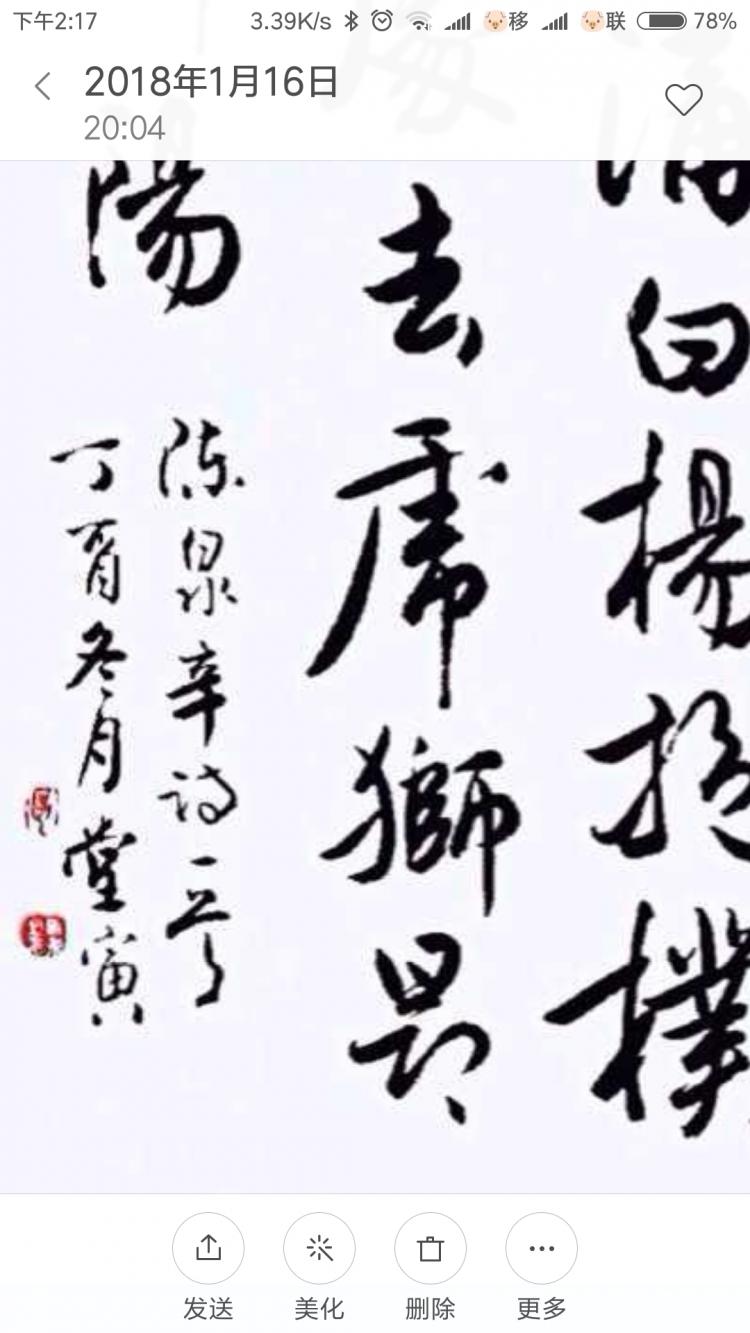 下午2:17 3.39K/s 移 联 78%
2018年1月16日
20:04
白楊
去 獅
陽
陈泉辛诗一首
丁酉冬月堂寅
发送 美化 删除 更多